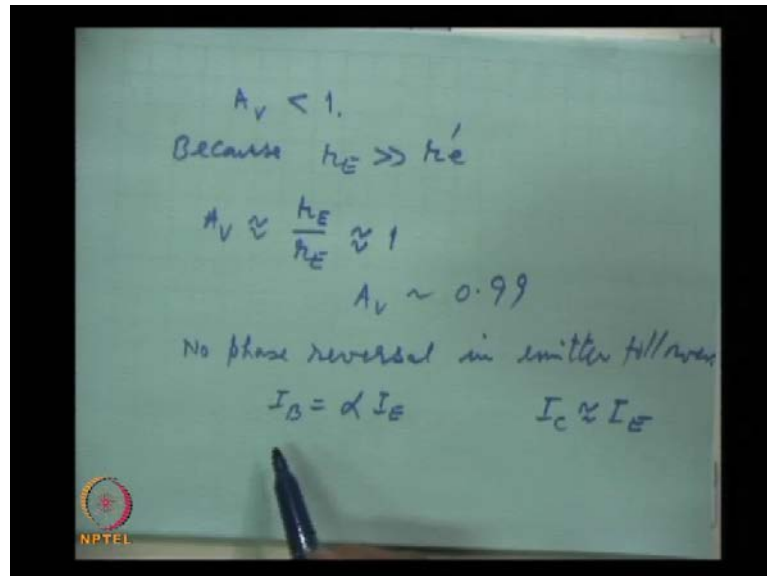 A_V < 1.
Because r_E >> r'_e
A_V ≈ r_E / r_E ≈ 1
A_V ~ 0.99
No phase reversal in emitter follower
I_B = α I_E I_C ≈ I_E
NPTEL